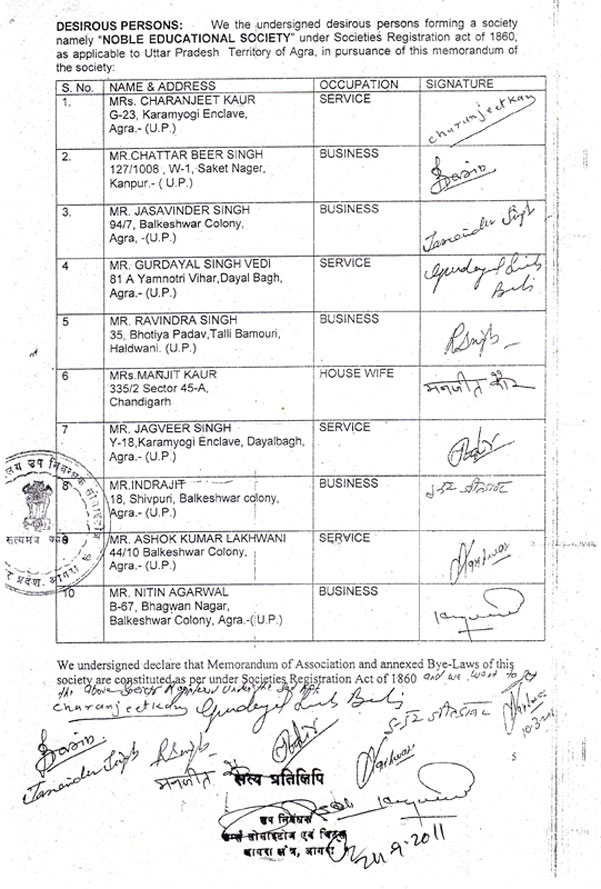 DESIROUS PERSONS: We the undersigned desirous persons forming a society
namely "NOBLE EDUCATIONAL SOCIETY" under Societies Registration act of 1860,
as applicable to Uttar Pradesh Territory of Agra, in pursuance of this memorandum of
the society:
S. No. NAME & ADDRESS OCCUPATION SIGNATURE
1. MRs. CHARANJEET KAUR SERVICE
G-23, Karamyogi Enclave,
Agra.- (U.P.)
charanjeetkaur
2. MR.CHATTAR BEER SINGH BUSINESS
127/1008 , W-1, Saket Nager,
Kanpur.- ( U.P.)
3. MR. JASAVINDER SINGH BUSINESS
94/7, Balkeshwar Colony,
Agra, -(U.P.)
4 MR. GURDAYAL SINGH VEDI SERVICE
81 A Yamnotri Vihar,Dayal Bagh,
Agra.- (U.P.)
5 MR. RAVINDRA SINGH BUSINESS
35, Bhotiya Padav,Talli Bamouri,
Haldwani. (U.P.)
6 MRs.MANJIT KAUR HOUSE WIFE
335/2 Sector 45-A,
Chandigarh
मनजीत कौर
7 MR. JAGVEER SINGH SERVICE
Y-18,Karamyogi Enclave, Dayalbagh,
Agra.- (U.P.)
8 MR.INDRAJIT BUSINESS
18, Shivpuri, Balkeshwar colony,
Agra.- (U.P.)
9 MR. ASHOK KUMAR LAKHWANI SERVICE
44/10 Balkeshwar Colony,
Agra.- (U.P.)
10 MR. NITIN AGARWAL BUSINESS
B-67, Bhagwan Nagar,
Balkeshwar Colony, Agra.-(U.P.)
We undersigned declare that Memorandum of Association and annexed Bye-Laws of this
society are constituted as per under Societies Registration Act of 1860 and we want to
the above Society Registered under the
charanjeetkaur
मनजीत कौर
सत्य प्रतिलिपि
उप निबंधक
सोसाइटीज एवं चिट्स
आगरा क्षेत्र, आगरा
24.9.2011